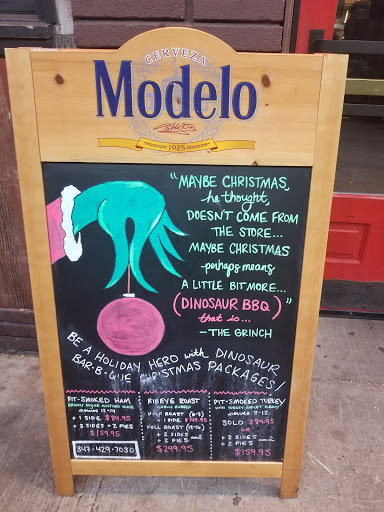 CERVEZA
Modelo
1925
"MAYBE CHRISTMAS,
he thought,
DOESN'T COME FROM
THE STORE...
MAYBE CHRISTMAS
-perhaps means
A LITTLE BIT MORE...
(DINOSAUR BBQ)"
that is...
- THE GRINCH
BE A HOLIDAY HERO with DINOSAUR
BAR-B-QUE CHRISTMAS PACKAGES!
PIT-SMOKED HAM
BROWN SUGAR MUSTARD GLAZE
+ 1 SIDE $84.95
+ 2 SIDES + 2 PIES
$159.95
347-429-7030
RIBEYE ROAST
HALF ROAST (6-8)
+ 1 SIDE
FULL ROAST
+ 2 SIDES and
+ 2 PIES
$299.95
PIT-SMOKED TURKEY
SOLO $84.95
OR
+ 2 SIDES and
+ 2 PIES
$159.95